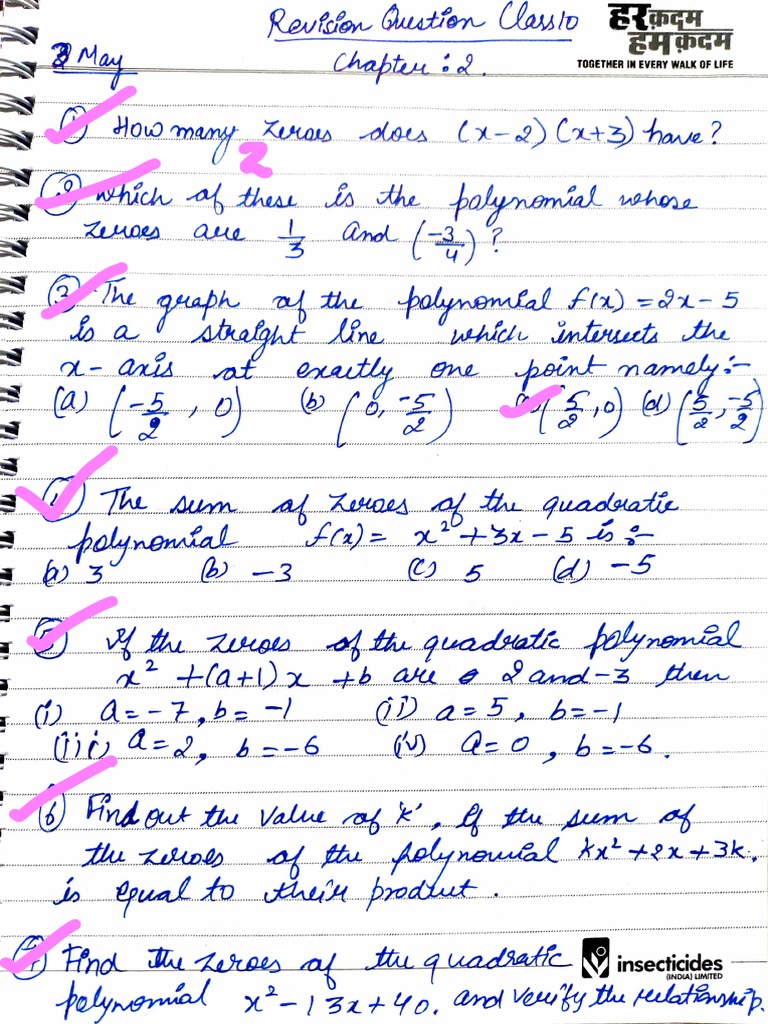 Revision Question Class10
हर क़दम
हम क़दम
TOGETHER IN EVERY WALK OF LIFE
3 May
Chapter : 2.
① How many zeroes does (x-2)(x+3) have?
2
② which of these is the polynomial whose
zeroes are 1/3 and (-3/4)?
③ The graph of the polynomial f(x) = 2x-5
is a straight line which intersects the
x-axis at exactly one point namely:-
(a) (-5/2, 0) (b) (0, -5/2) (c) (5/2, 0) (d) (5/2, -5/2)
④ The sum of zeroes of the quadratic
polynomial f(x) = x² + 3x - 5 is :-
(a) 3 (b) -3 (c) 5 (d) -5
⑤ If the zeroes of the quadratic polynomial
x² + (a+1)x + b are 2 and -3 then
(i) a = -7, b = -1 (ii) a = 5, b = -1
(iii) a = 2, b = -6 (iv) a = 0, b = -6.
⑥ Find out the value of 'k', if the sum of
the zeroes of the polynomial kx² + 2x + 3k.
is equal to their product.
⑦ Find the zeroes of the quadratic
polynomial x² - 13x + 40. and verify the relationship.
insecticides
(INDIA) LIMITED